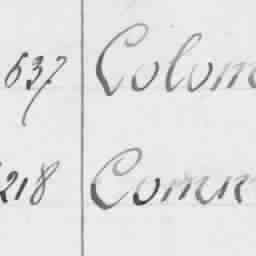 637 Colom
218 Comm